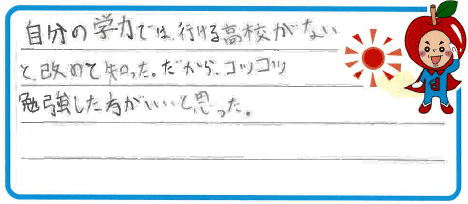 自分の学力では、行ける高校がない
と、改めて知った。だから、コツコツ
勉強した方がいいと思った。